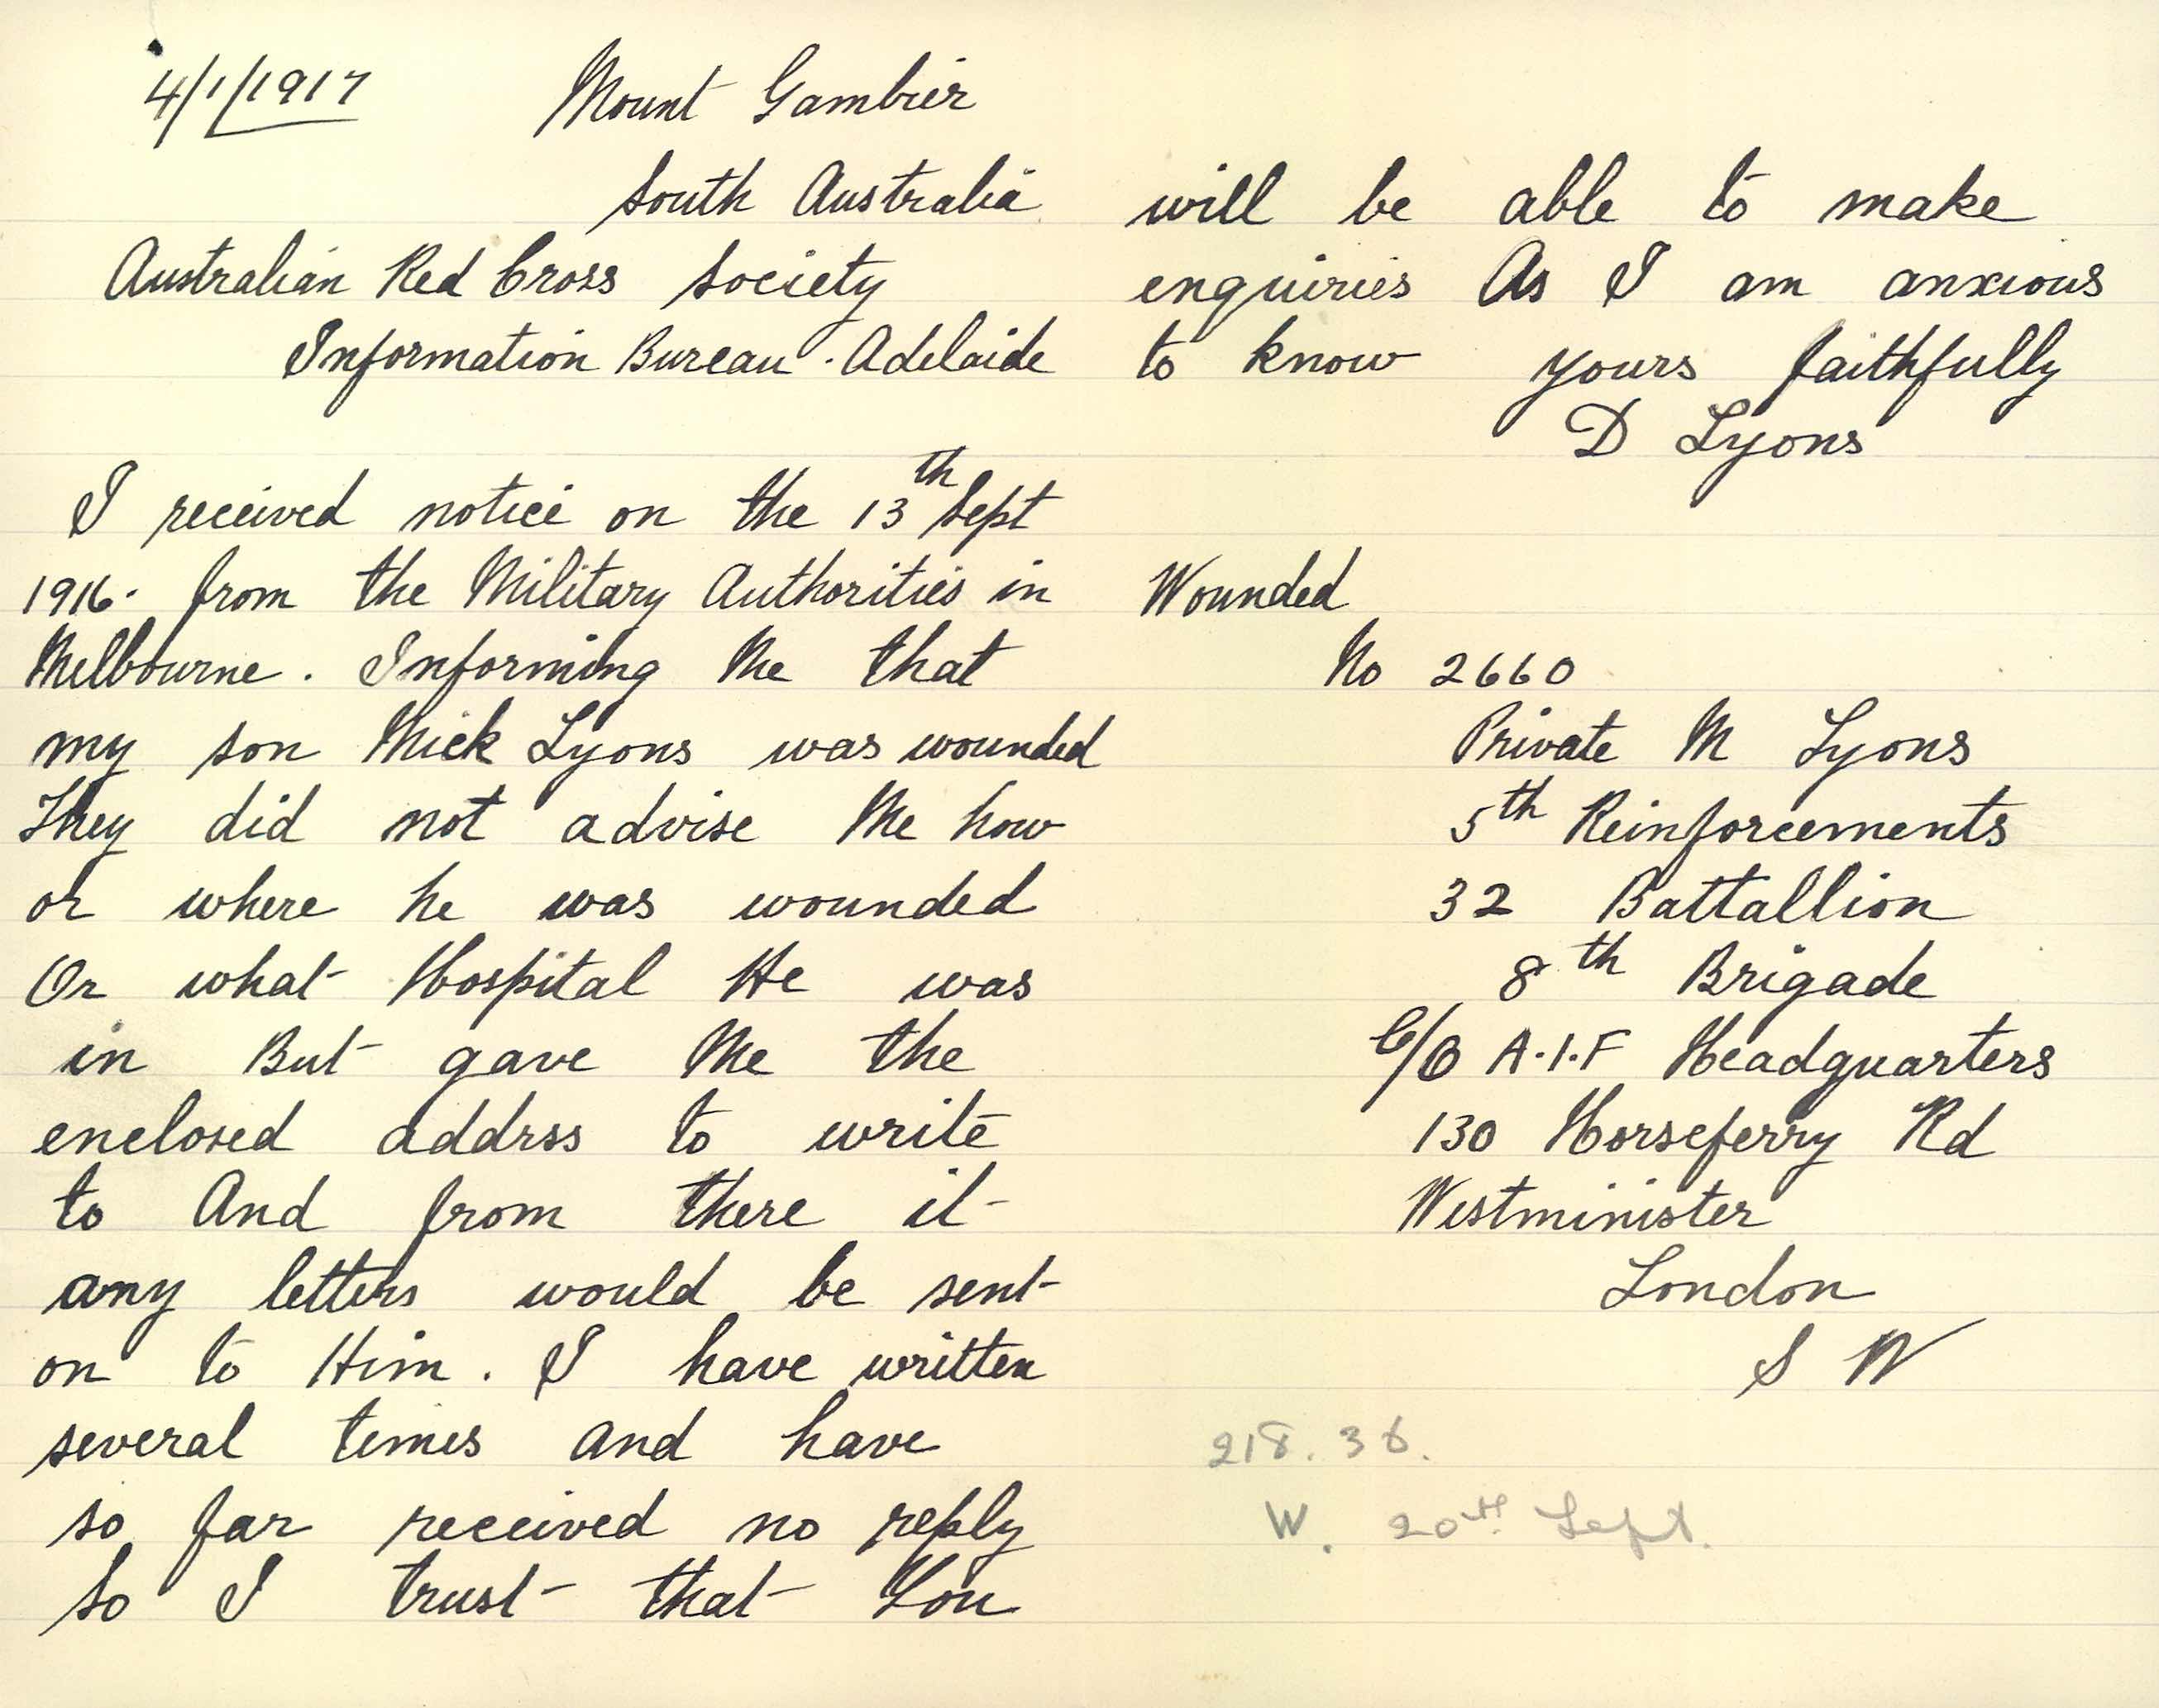 4/1/1917 Mount Gambier
South Australia
Australian Red Cross Society
Information Bureau. Adelaide
I received notice on the 13th Sept
1916. from the Military Authorities in
Melbourne. Informing Me that
my son Mick Lyons was wounded
They did not advise Me how
or where he was wounded
Or what Hospital He was
in But gave Me the
enclosed addrss to write
to And from there it
any letters would be sent
on to Him. I have written
several times and have
so far received no reply
So I trust that You
will be able to make
enquiries As I am anxious
to know yours faithfully
D Lyons
Wounded
No 2660
Private M Lyons
5th Reinforcements
32 Battallion
8th Brigade
C/O A.I.F Headquarters
130 Horseferry Rd
Westminister
London
S W
218. 36.
W. 20th Sept.